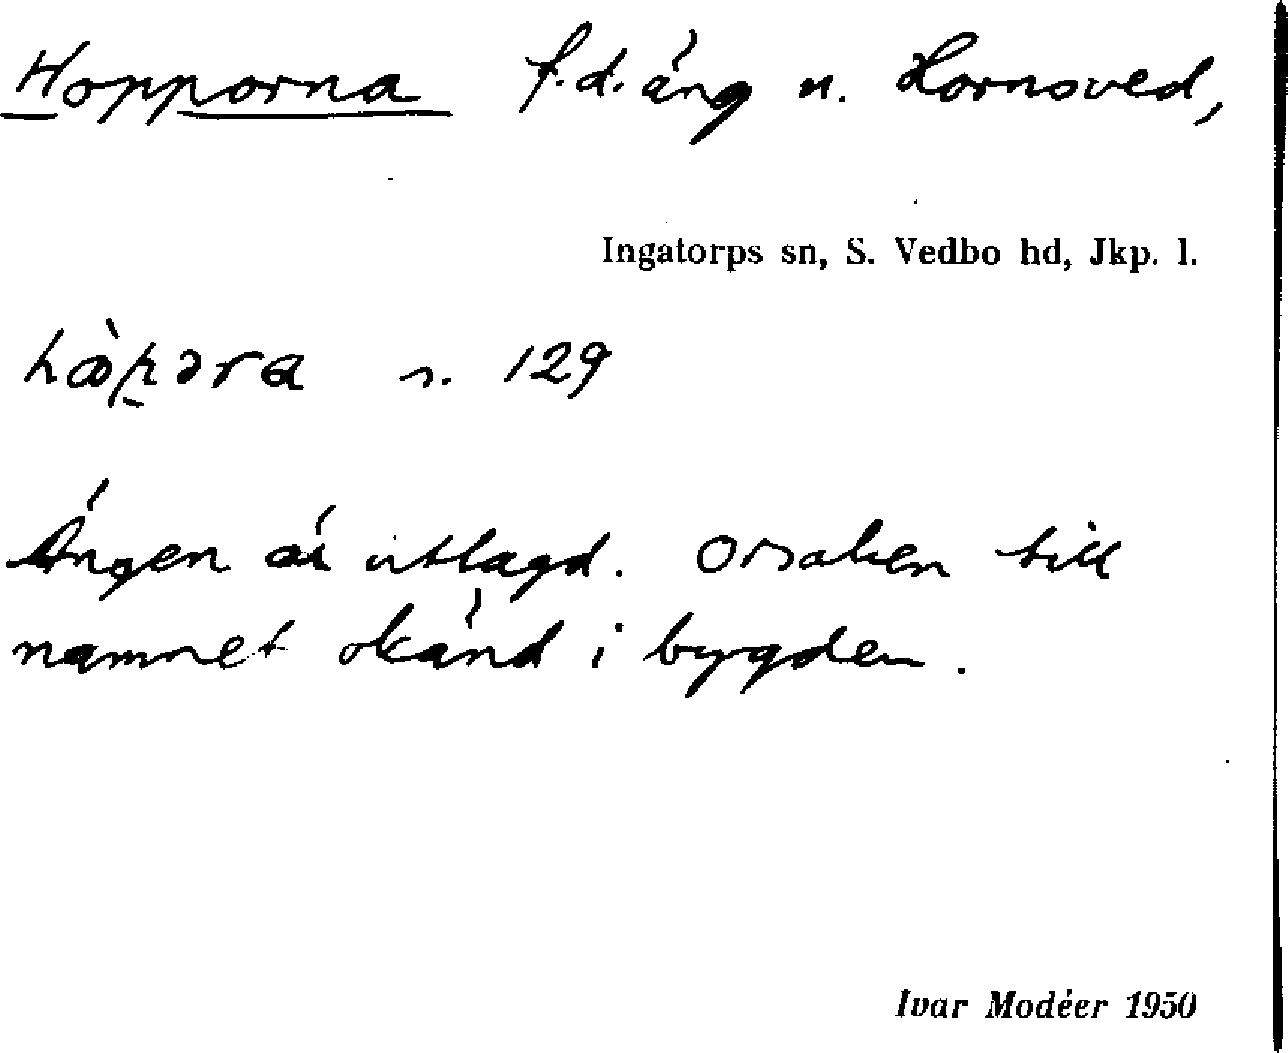 Hopporna f.d. äng u. Hornsved,
Ingatorps sn, S. Vedbo hd, Jkp. l.
s. 129
Ängen är utlagd. Orsaken till
namnet okänd i bygden.
Ivar Modéer 1950